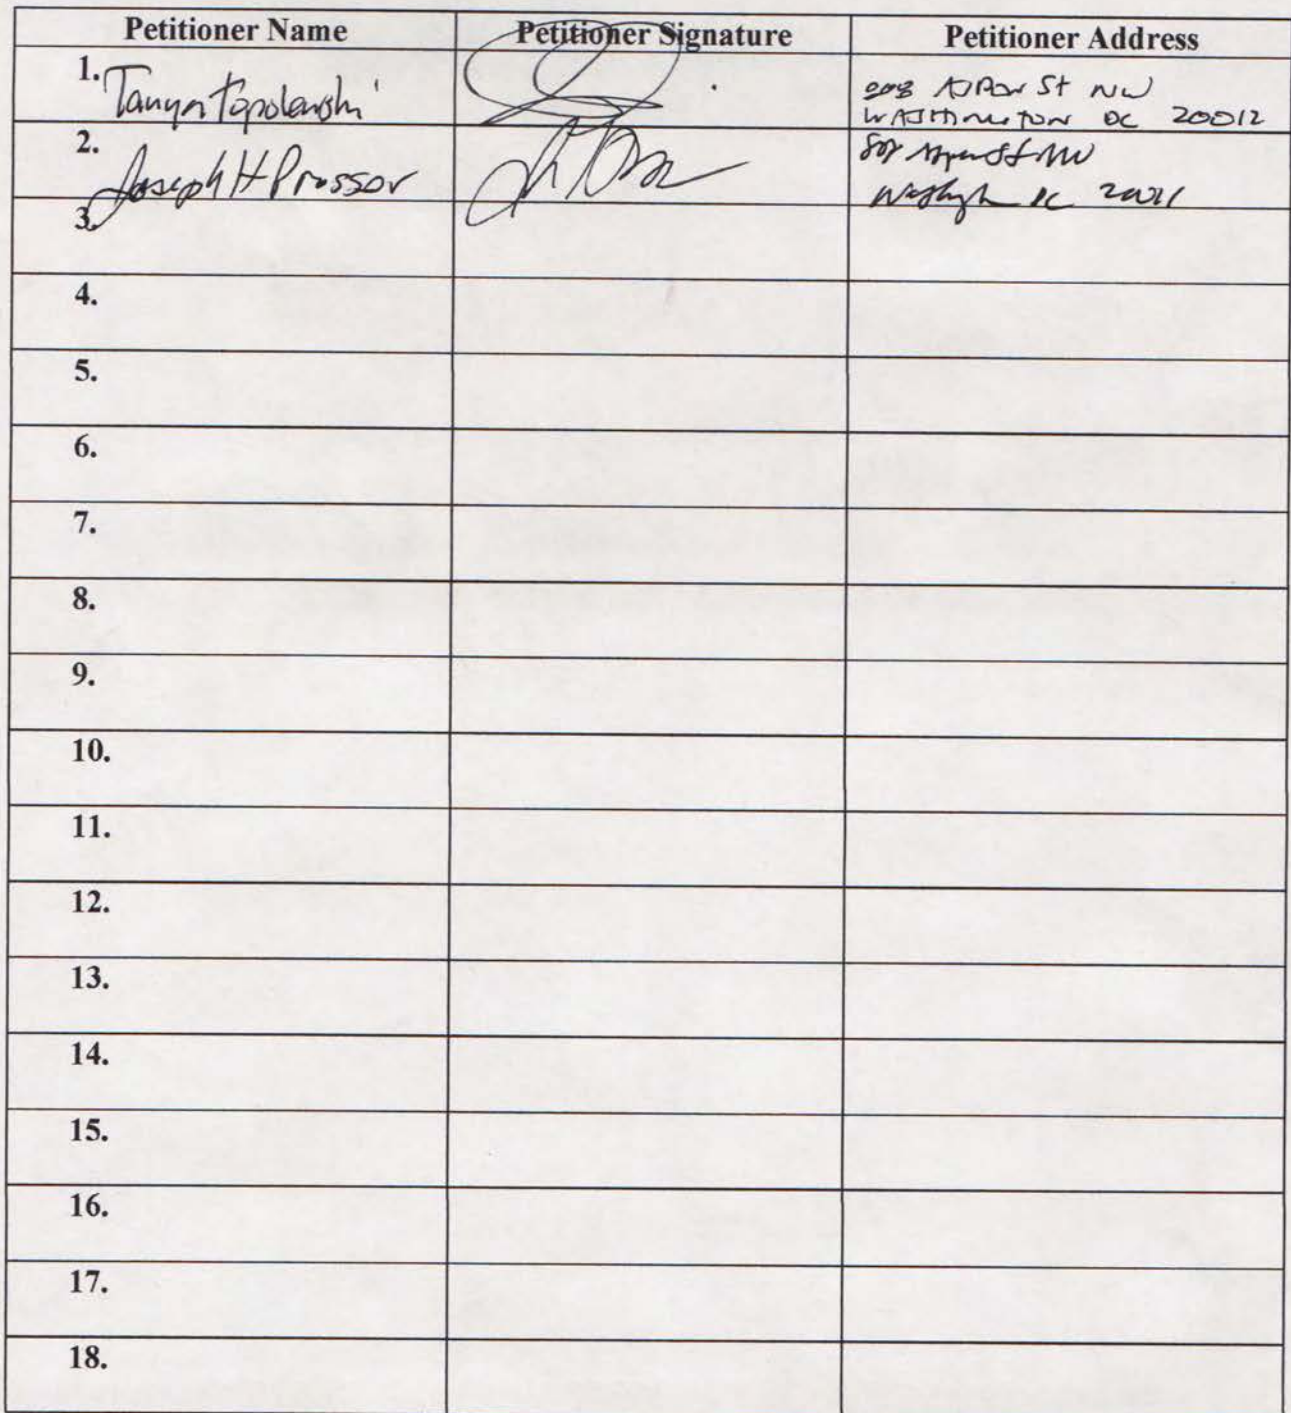 Petitioner Name Petitioner Signature Petitioner Address
1. Tanya Topolewski St NW
WASHINGTON DC 20012
2. Joseph H Prossor St NW
Washington DC
3.
4.
5.
6.
7.
8.
9.
10.
11.
12.
13.
14.
15.
16.
17.
18.